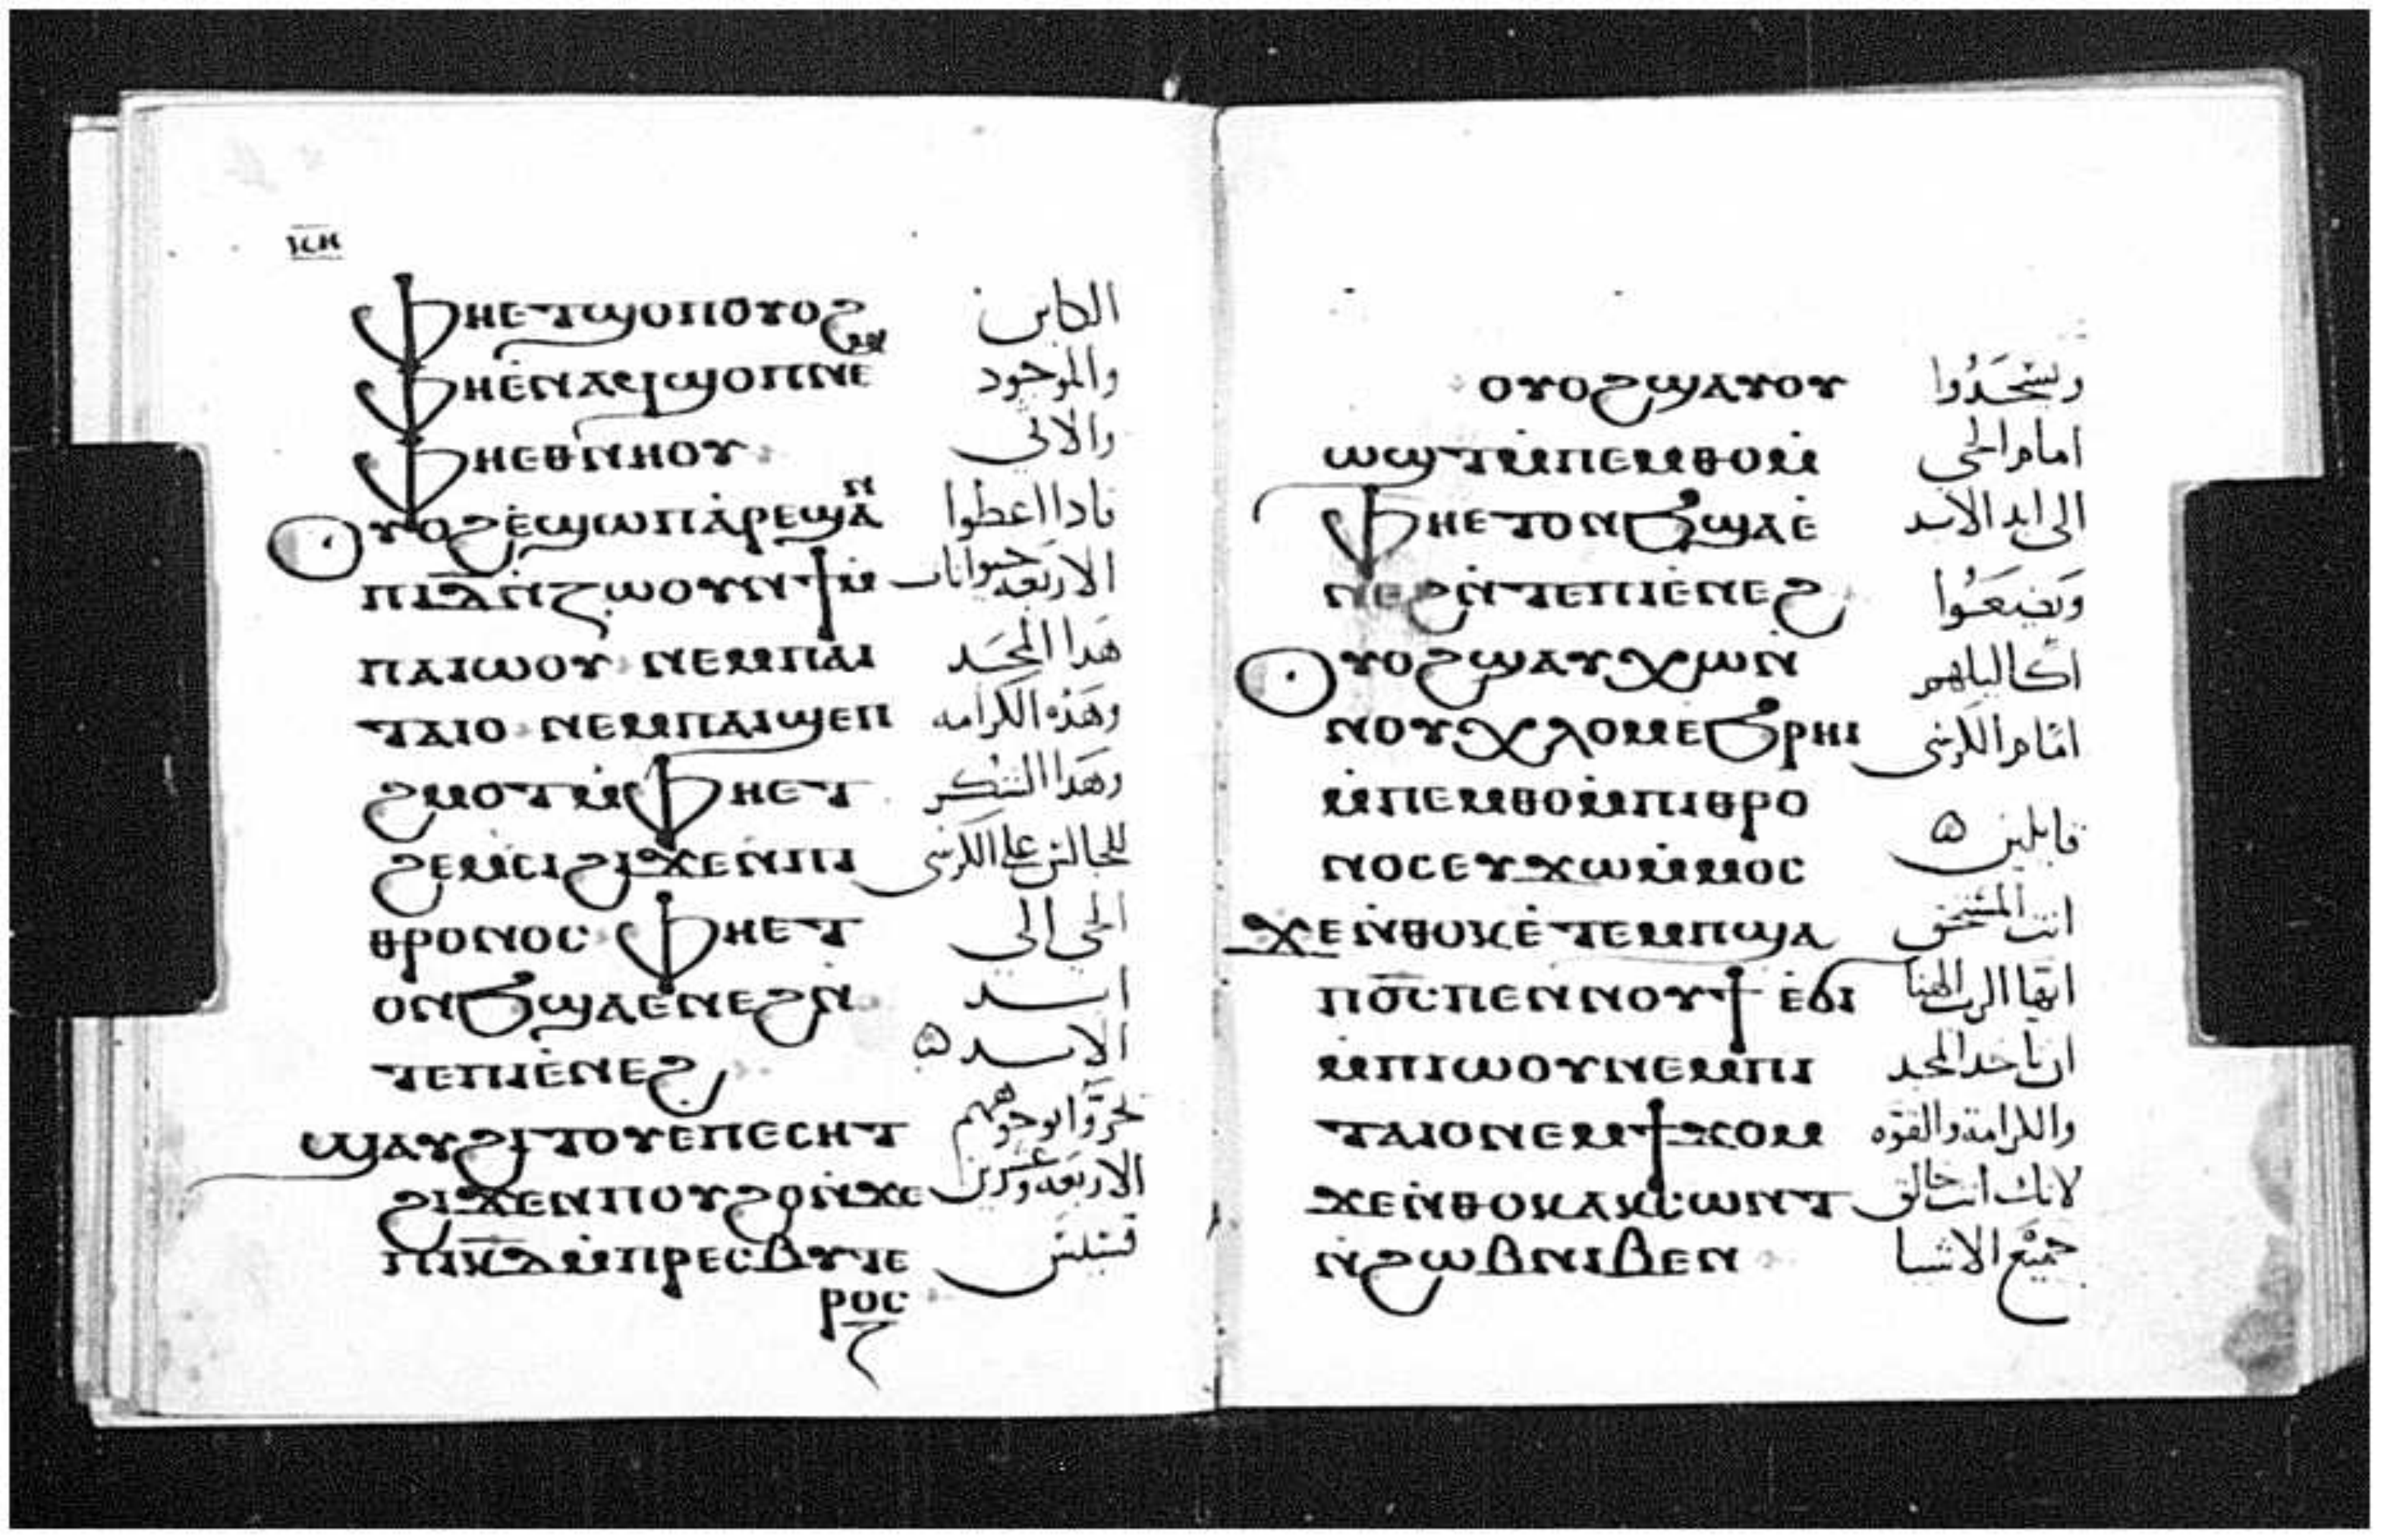 ⲕⲏ
ⲫⲏⲉⲧϣⲟⲡⲟⲩⲟϩ الكاين
ⲫⲏⲉ̀ⲛⲁϥϣⲟⲡⲡⲉ والموجود
ⲫⲏⲉⲑⲛⲏⲟⲩ والاتي
ⲟⲩⲟϩⲉ̀ϣⲱⲡⲁ̀ⲣⲉϣⲁⲛ فاذا اعطوا
ⲡⲓⲇ̅ⲛ̀ⲍⲱⲟⲩⲛϯⲙ̀ الاربعه حيوانات
ⲡⲁⲓⲱⲟⲩ ⲛⲉⲙⲡⲁⲓ هَذا المجَد
ⲧⲁⲓⲟ ⲛⲉⲙⲡⲁⲓϣⲉⲡ وهَذه الكرامه
ϩⲙⲟⲧⲙ̀ⲫⲏⲉⲧ وهَذا الشكر
ϩⲉⲙⲥⲓϩⲓϫⲉⲛⲡⲓ للجالس على الكرسي
ⲑⲣⲟⲛⲟⲥ ⲫⲏⲉⲧ الحي الى
ⲟⲛϧϣⲁⲉⲛⲉϩⲛ̀ ابد
ⲧⲉⲡⲓⲉ̀ⲛⲉϩ الابد
ϣⲁⲩϩⲓⲧⲟⲩⲉ̀ⲡⲉⲥⲏⲧ خرّوا بوجوههم
ϩⲓϫⲉⲛⲡⲟⲩϩⲟⲛ̀ϫⲉ الاربعه وعشرين
ⲡⲓⲕ̅ⲇ̅ⲙ̀ⲡⲣⲉⲥⲃⲩⲧⲉ قسيس
ⲣⲟⲥ
ⲟⲩⲟϩϣⲁⲩⲟⲩ ويسجَدُوا
ⲱϣⲧⲙ̀ⲡⲉⲙⲑⲟⲙ̀ امام الحي
ⲫⲏⲉⲧⲟⲛϧϣⲁⲉ̀ الى ابد الابد
ⲛⲉϩⲛ̀ⲧⲉⲡⲓⲉ̀ⲛⲉϩ وَيَضَعَوُا
ⲟⲩⲟϩϣⲁⲩⲭⲱⲛ̀ اكاليلهم
ⲛⲟⲩⲭⲗⲟⲙⲉϧⲣⲏⲓ امام الكرسي
ⲙ̀ⲡⲉⲙⲑⲟⲙ̀ⲡⲓⲑⲣⲟ
ⲛⲟⲥⲉⲩϫⲱⲙ̀ⲙⲟⲥ قايلين
ϫⲉⲛ̀ⲑⲟⲕⲉ̀ⲧⲉⲙⲡϣⲁ انت المستحق
ⲡⲟ̅ⲥ̅ⲡⲉⲛⲛⲟⲩϯ ⲉ̀ϭⲓ ايها الرب الهنا
ⲙ̀ⲡⲓⲱⲟⲩⲛⲉⲙⲡⲓ ان تاخد المجد
ⲧⲁⲓⲟⲛⲉⲙϯϫⲟⲙ والكرامة والقوّه
ϫⲉⲛ̀ⲑⲟⲕⲁⲕⲥⲱⲛⲧ لانك انت خالق
ⲛ̀ϩⲱⲃⲛⲓⲃⲉⲛ جميع الاشيا